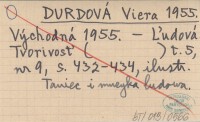 DURDOVÁ Viera 1955.
Východná 1955. – Ľudová
Tvorivosť ( ) t. 5,
nr 9, s. 432-434, ilustr.
Taniec i muzyka ludowa.